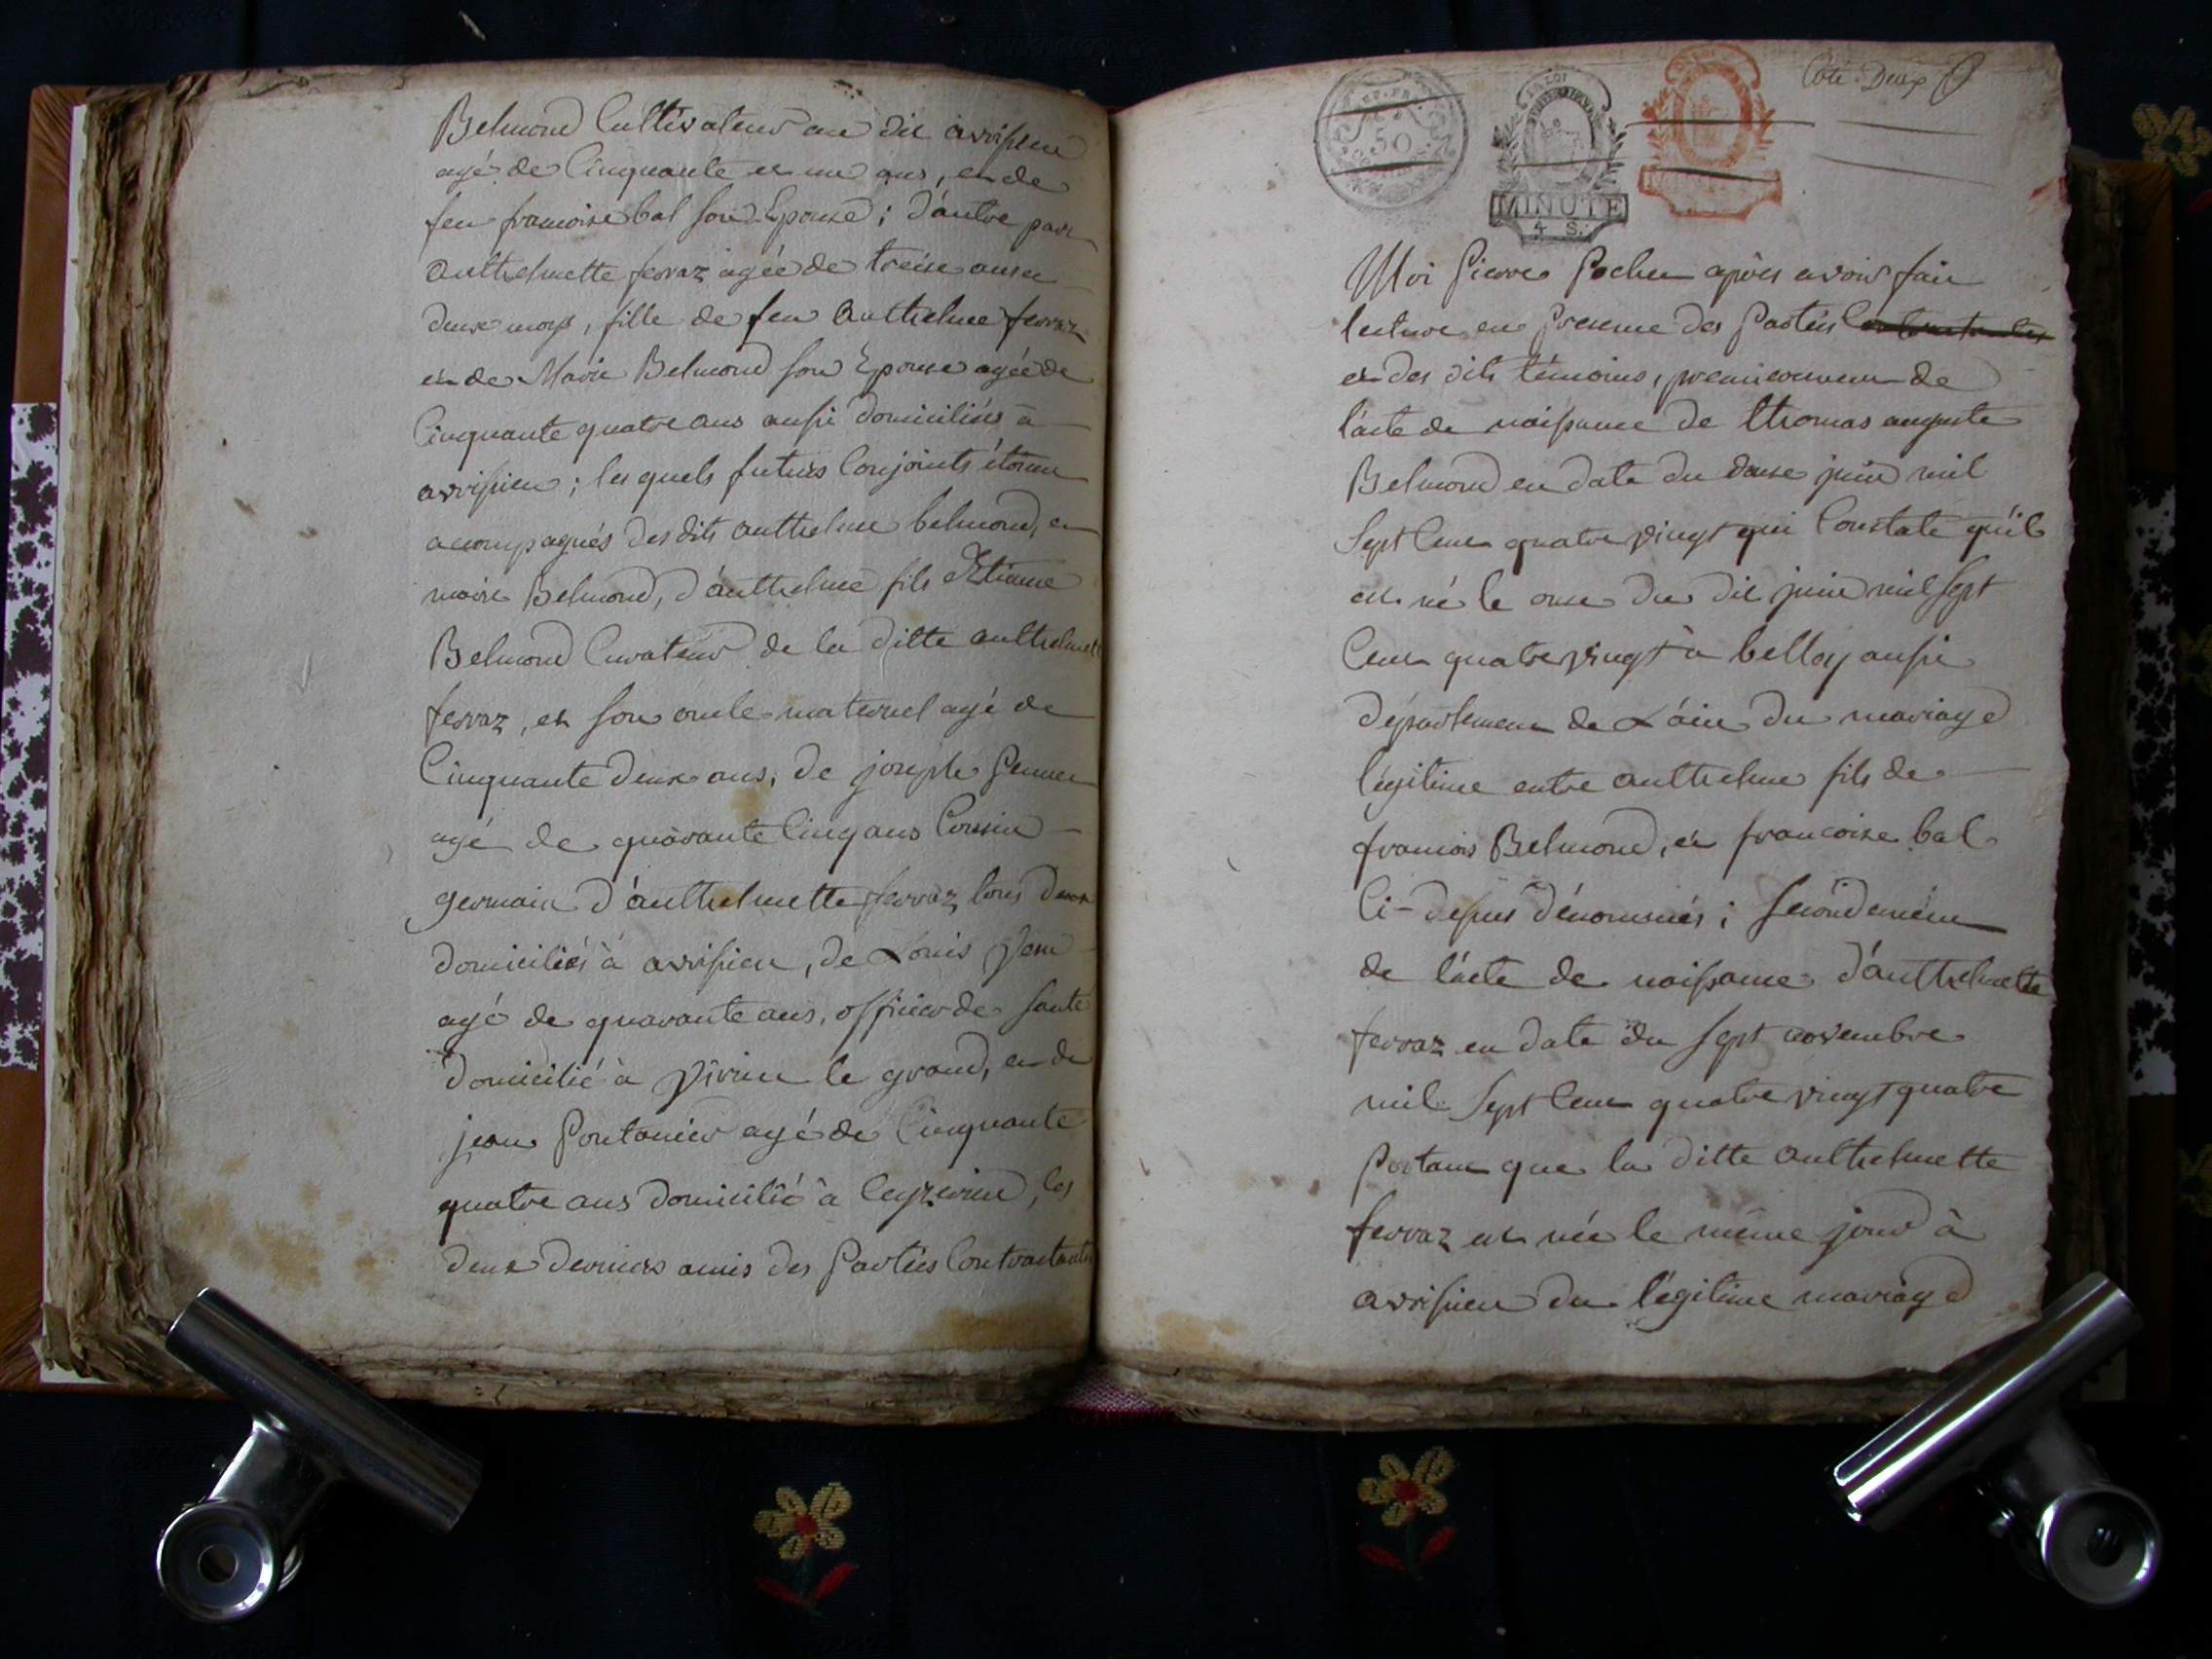 Belmond Cultivateur au dit arvisieu
agé de Cinquante et un ans, et de
feu francoise bal son Epouse; d'autre part
Anthelmette ferraz agée de treise ans et
deux moys, fille de feu Anthelme ferraz
et de Marie Belmond son Epouse agée de
Cinquante quatre ans aussi domiciliés à
arvisieu; les quels futurs Conjoints étoient
acompagnés des dits anthelme belmond, et
marie Belmond, d'anthelme fils Etienne
Belmond Curateur de la ditte anthelmette
ferraz, et son oncle maternel agé de
Cinquante deux ans, de joseph
agé de quarante Cinq ans Cousin
germain d'anthelmette ferraz tous deux
domiciliés à arvisieu, de Louis
agé de quarante ans, officier de santé
domicilié à Virieu le grand, et de
jean agé de Cinquante
quatre ans domicilié à Ceyzerieu, les
deux derniers amis des Parties Contractantes
Coté Deux
REP. FRA.
50
LA LOI
MINUTE
4 S.
Moi Pierre Pochet après avoir fait
lecture en Presence des Parties Contractantes
et des dits témoins, premierement de
l'acte de naissance de thomas auguste
Belmond en date du douse juin mil
Sept Cent quatre vingt qui Constate qu'il
est né le onse du dit juin mil sept
Cent quatre vingt à belley aussi
département de L'ain du mariage
légitime entre anthelme fils de
francois Belmond, et francoise bal
Ci-dessus dénommés; secondement
de l'acte de naissance d'anthelmette
ferraz en date du sept novembre
mil Sept Cent quatre vingt quatre
Portant que la ditte anthelmette
ferraz est née le même jour à
arvisieu du légitime mariage